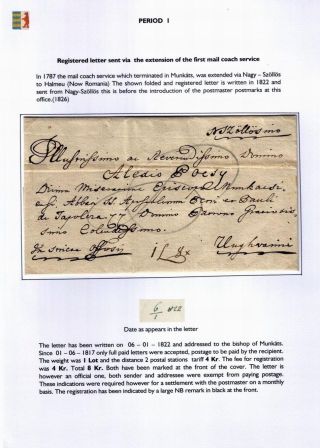 PERIOD 1
Registered letter sent via the extension of the first mail coach service
In 1787 the mail coach service which terminated in Munkáts, was extended via Nagy – Szöllös
to Halmeu (Now Romania) The shown folded and registered letter is written in 1822 and
sent from Nagy-Szöllös this is before the introduction of the postmaster postmarks at this
office.(1826)
Illustrissimo ac Reverendissimo Domino
Alexio Pocsy
Divina Miseratione Episcopo Munkacsi
Unghvarini
6/1 822
Date as appears in the letter
The letter has been written on 06 – 01 – 1822 and addressed to the bishop of Munkáts.
Since 01 – 06 – 1817 only full paid letters were accepted, postage to be paid by the recipient.
The weight was 1 Lot and the distance 2 postal stations tariff 4 Kr. The fee for registration
was 4 Kr. Total 8 Kr. Both have been marked at the front of the cover. The letter is
however an official one, both sender and addressee were exempt from paying postage.
These indications were required however for a settlement with the postmaster on a monthly
basis. The registration has been indicated by a large NB remark in black at the front.